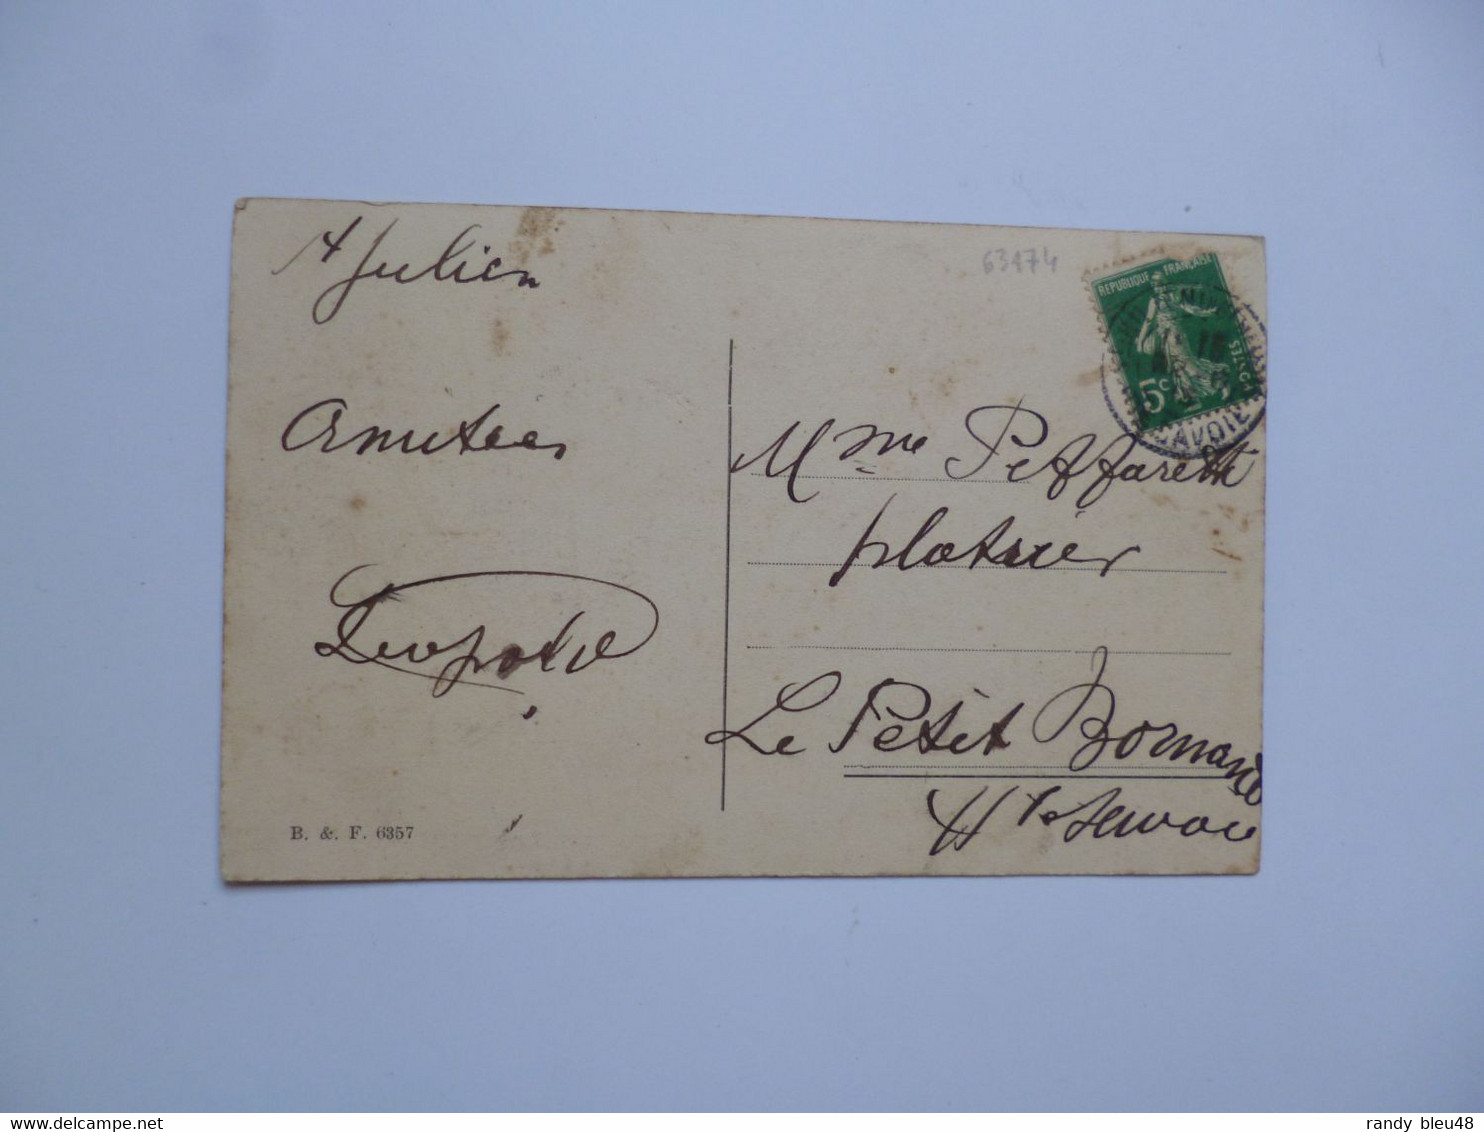 A Julien
Amitiés
Léopold
B. & F. 6357
63174
RÉPUBLIQUE FRANÇAISE
POSTES
5c
SAVOIE
Mme Peffarett
platrier
Le Petit Bornand
Hte Savoie
delcampe.net
randy_bleu48